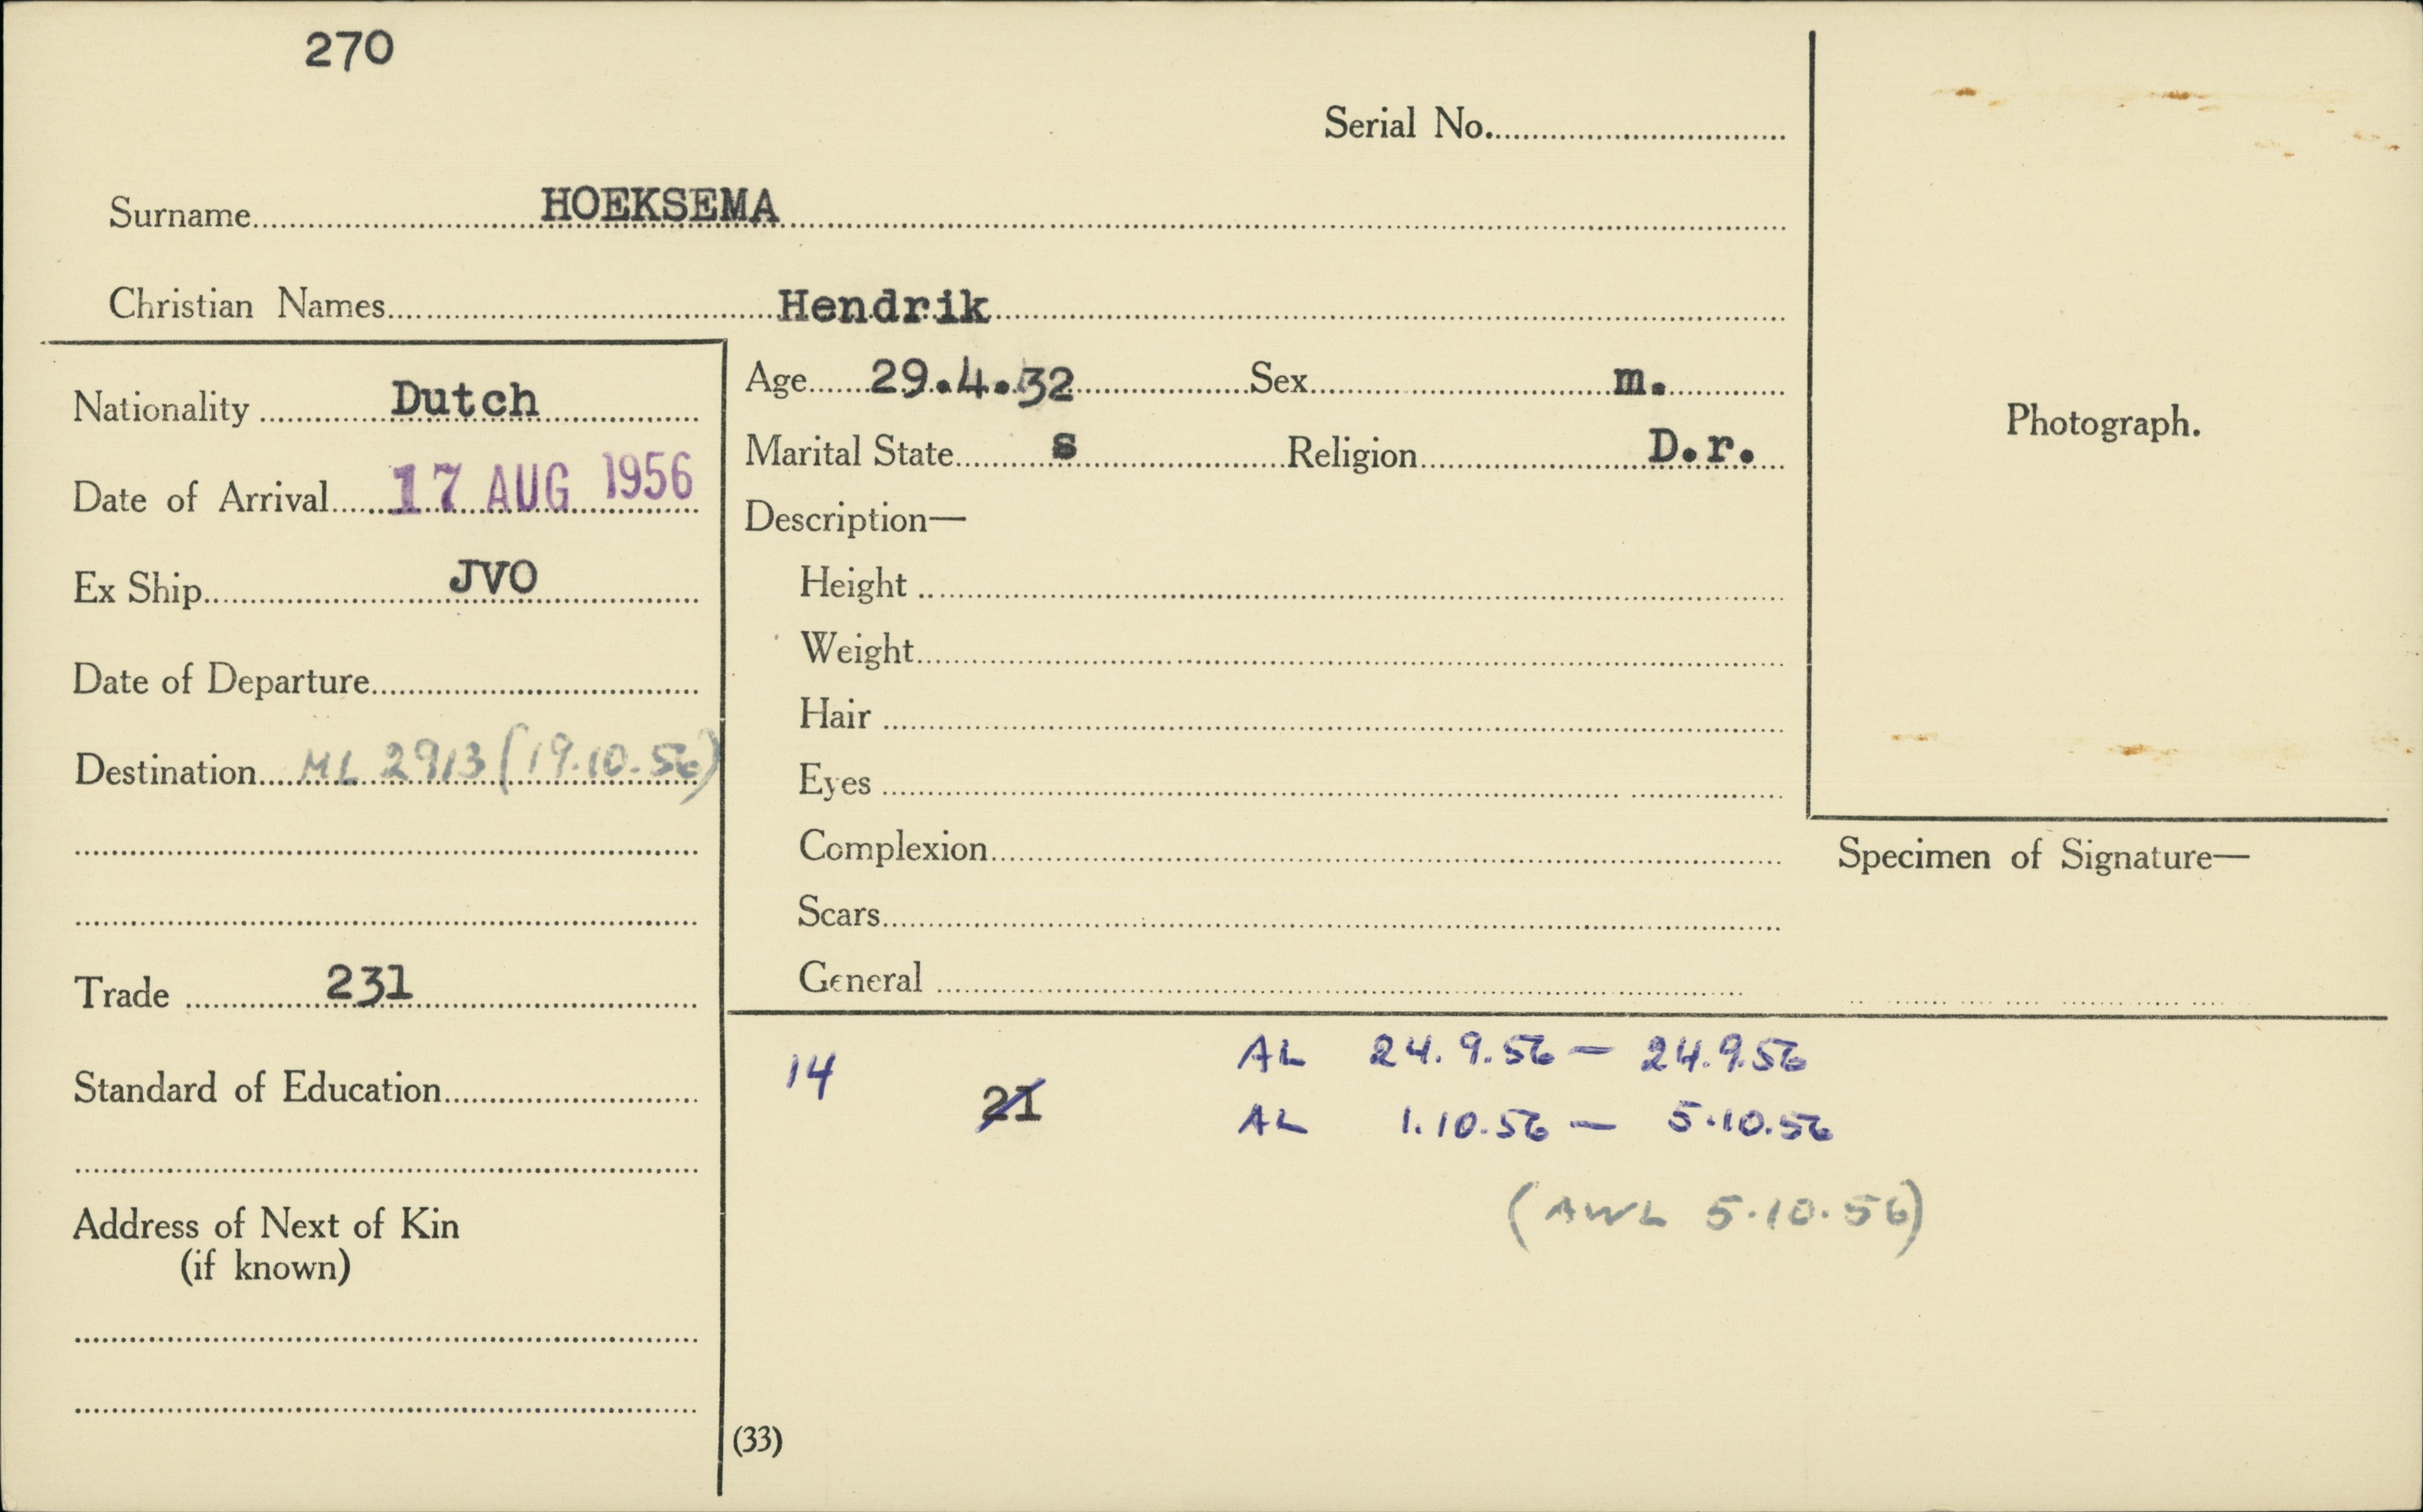 270
Serial No.
Surname HOEKSEMA
Christian Names Hendrik
Nationality Dutch
Date of Arrival 17 AUG 1956
Ex Ship JVO
Date of Departure
Destination ML 2913 (19.10.56)
Trade 231
Standard of Education
Address of Next of Kin
(if known)
Age 29.4.32 Sex m.
Marital State s Religion D.r.
Description—
Height
Weight
Hair
Eyes
Complexion
Scars
General
Photograph.
Specimen of Signature—
14 21 AL 24.9.56 — 24.9.56
AL 1.10.56 — 5.10.56
(AWL 5.10.56)
(33)